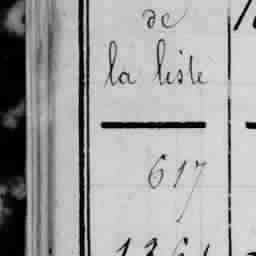 de
la liste
617